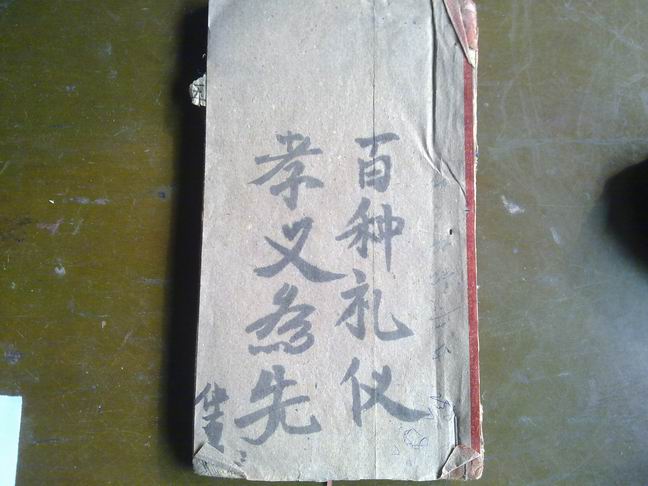 百种礼仪
孝义為先